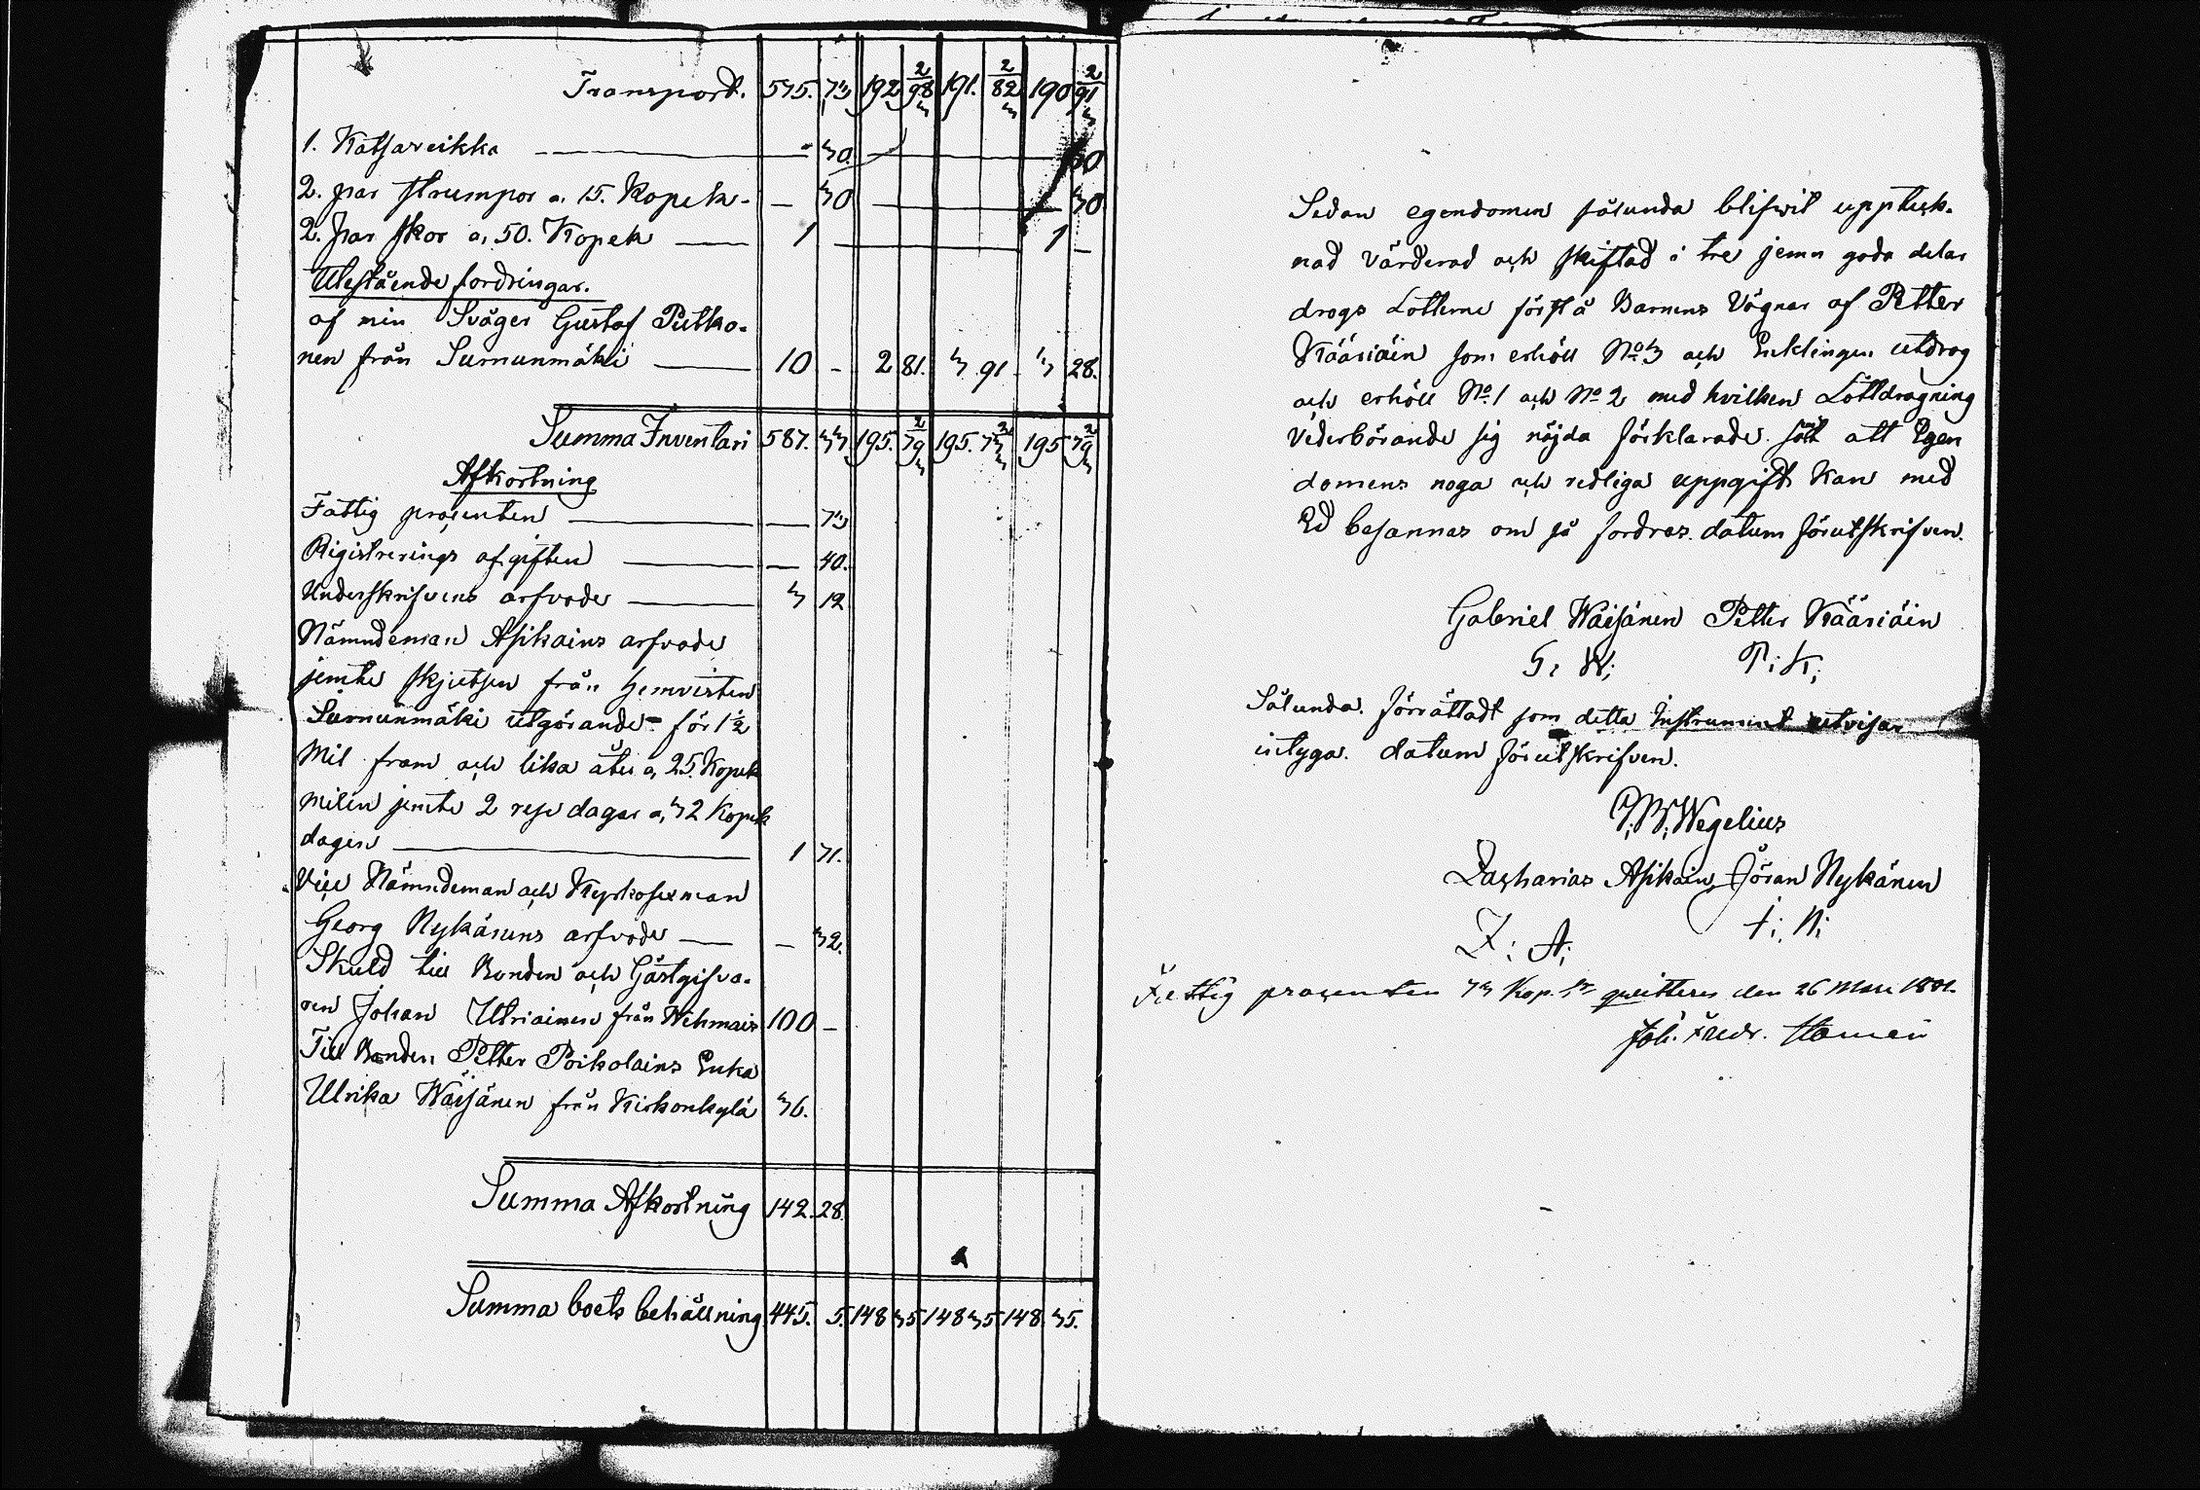 Transport. 575. 73 192 98 2/3 191. 82 2/3 190 91 2/3
1. Katsareikka — 30. — 30
2. par strumpor a. 15. Kopek - — 30 — 30
2. par skor a, 50. Kopek — 1 — 1 —
Utestående fordringar.
af min Svåger Gustaf Putko-
nen från Surnunmäki — 10 - 2 81. 3 91 3 28.
Summa Inventari 587. 33. 195. 79 2/3 195. 73 2/3 195 79 2/3
Afkortning
Fattig procenten — — 73
Rigistrerings afgiften — — 40.
Underskrifvens arfvode — 3 12
Nämndeman Asikains arfvode
jemte skjutsen från hemvisten
Surnunmäki utgörande för 1 1/2
Mil fram och lika åter a, 25. Kopek
milen jemte 2 rese dagar a, 32 Kopek
dagen — 1 71.
Vice Nämndeman och Kyrkosexman
Georg Nykänens arfvode — — 32.
Skuld till Bonden och Gästgifva-
ren Johan Utriainen från Wehmais 100 -
Till Bonden Petter Poikolains Enka
Ulrika Wäisänen från Kirkonkylä 36.
Summa Afkortning 142. 28.
Summa boets behållning 445. 5. 148 35 148 35 148. 35.
Sedan egendomen sålunda blifwit uppteck-
nad värderad och skiftad i tre jemn goda delar
drogs Lotterne först å Barnens Vägnar af Petter
Kääriäin som erhöll No 3 och Enklingen utdrog
och erhöll No 1 och No 2 med hvilken Lottdragning
Vederbörande sig nöjda förklarade. samt att Egen
domens noga och redliga uppgift Kan med
Ed besannas om så fordras. datum förutskrifven.
Gabriel Wäisänen Petter Kääriäin
G: W: P: K:
Sålunda. förrättadt som detta Instrument utvisar
intyga. datum förutskrifven.
Wegelius
Zacharias Asikain, Jöran Nykänen
Z: A: J: N:
Fattig procenten 73 Kop. Sr quitteres den 26 Mars
Joh. Fredr.